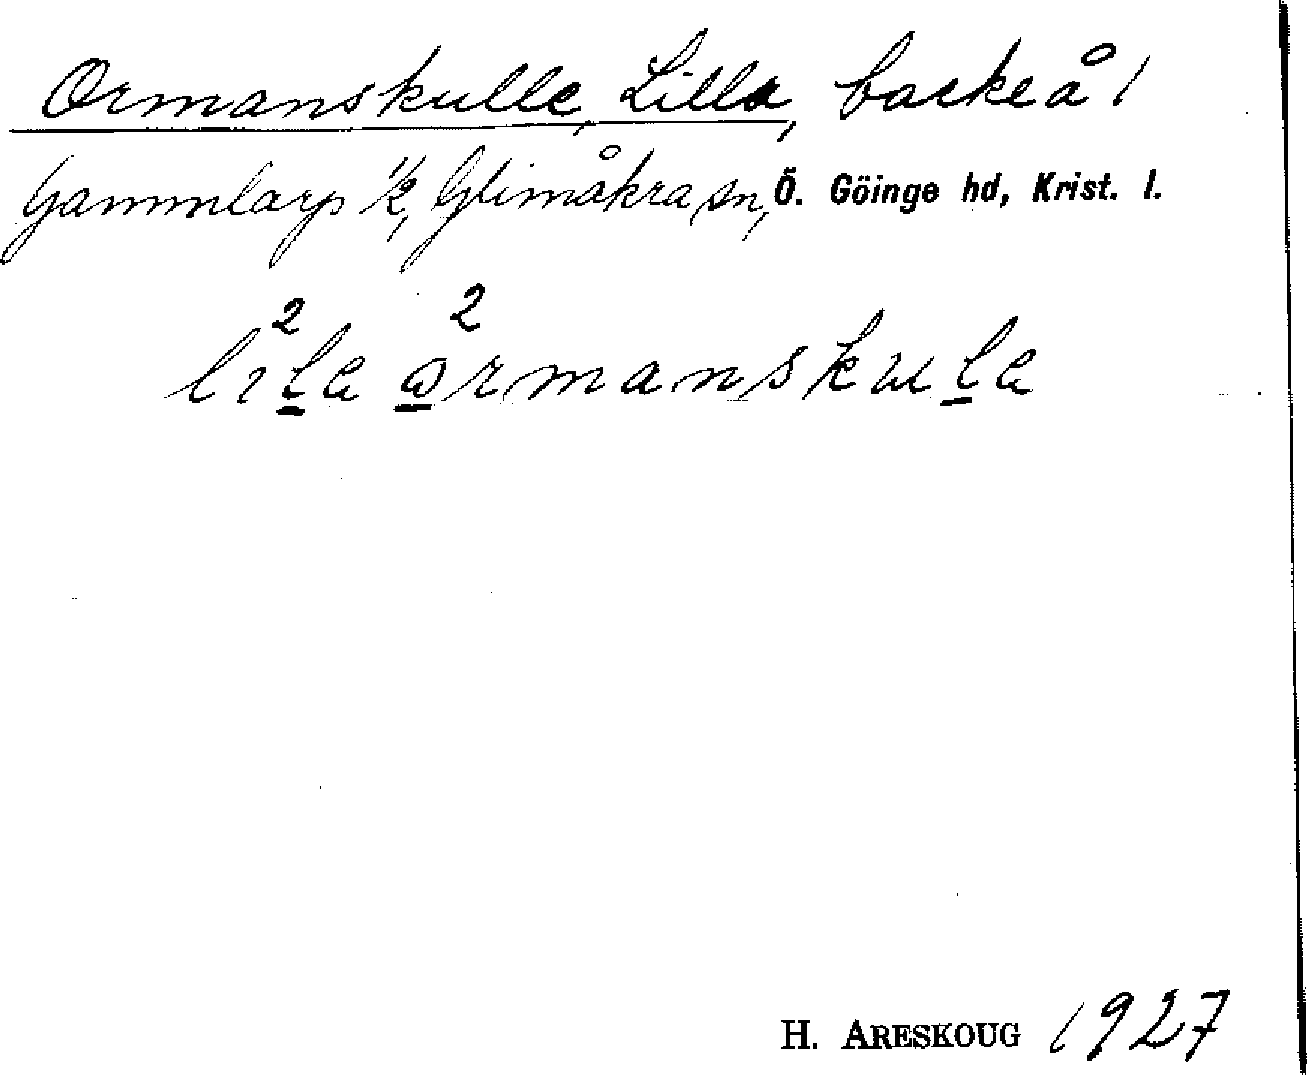 Ormanskulle, Lilla, backe å 1
Gammlarp 1/2, Glimåkra sn, Ö. Göinge hd, Krist. l.
2 2
lıla ormanskula
H. ARESKOUG 1927